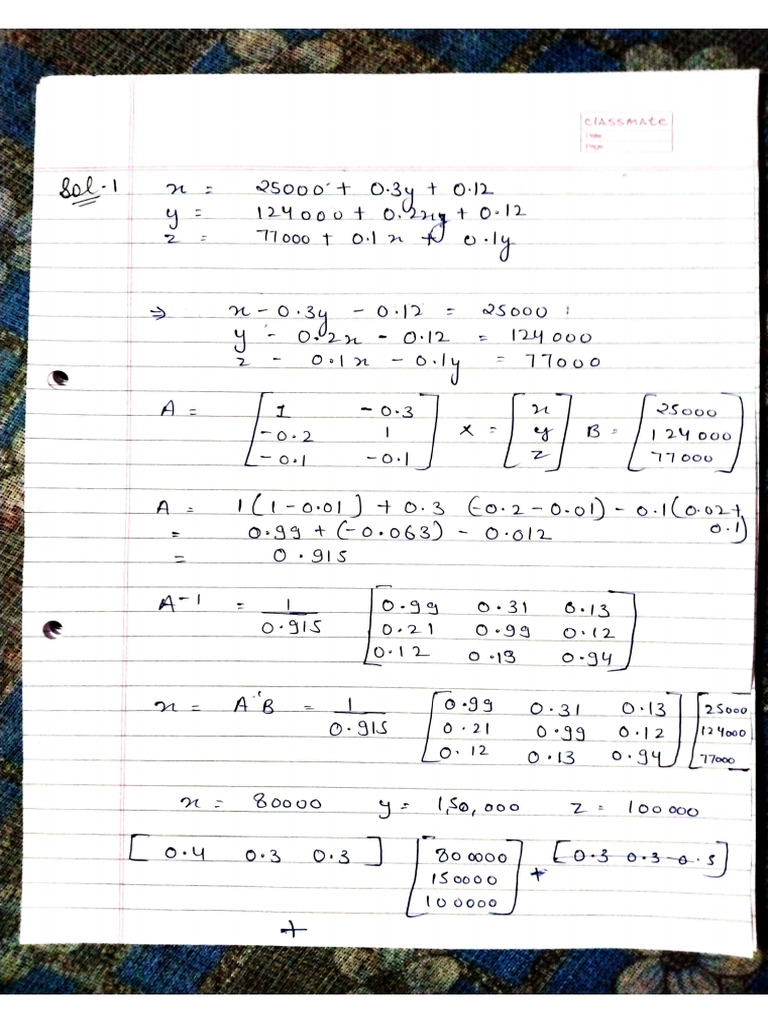 classmate
Date
Page
Sol-1 x = 25000 + 0.3y + 0.12
y = 124000 + 0.2x + 0.12
z = 77000 + 0.1x + 0.1y
⇒ x - 0.3y - 0.12 = 25000
y - 0.2x - 0.12 = 124000
z - 0.1x - 0.1y = 77000
A = [ 1 -0.3 ] X = [ x ] B = [ 25000 ]
[ -0.2 1 ] [ y ] [ 124000 ]
[ -0.1 -0.1 ] [ z ] [ 77000 ]
A = 1(1-0.01) + 0.3 (-0.2-0.01) - 0.1(0.02+
0.1)
= 0.99 + (-0.063) - 0.012
= 0.915
A-1 = 1/0.915 [ 0.99 0.31 0.13 ]
[ 0.21 0.99 0.12 ]
[ 0.12 0.13 0.94 ]
x = A-1B = 1/0.915 [ 0.99 0.31 0.13 ] [ 25000 ]
[ 0.21 0.99 0.12 ] [ 124000 ]
[ 0.12 0.13 0.94 ] [ 77000 ]
x = 80000 y = 1,50,000 z = 100000
[ 0.4 0.3 0.3 ] [ 800000 ] + [ 0.3 0.3 0.5 ]
[ 150000 ]
[ 100000 ]
+